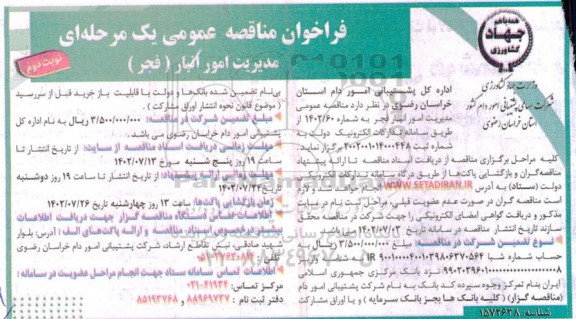 فراخوان مناقصه عمومی یک مرحله‌ای
مدیریت امور انبار ( فجر )
نوبت دوم
همه با هم
جهاد
کشاورزی
وزارت جهاد کشاورزی
شرکت پشتیبانی امور دام کشور
استان خراسان رضوی
اداره کل پشتیبانی امور دام استان
خراسان رضوی در نظر دارد مناقصه عمومی
مدیریت امور انبار فجر به شماره ۱۴۰۲/۶۰ از
طریق سامانه تدارکات الکترونیک دولت به
شماره ثبت ۲۰۰۲۰۰۱۰۱۴۰۰۰۴۴۸ برگزار نماید.
کلیه مراحل برگزاری مناقصه از دریافت اسناد مناقصه تا ارائه پیشنهاد
مناقصه‌گران و بازگشایی پاکت‌ها از طریق درگاه سامانه تدارکات الکترونیکی
دولت (ستاد) به آدرس WWW.SETADIRAN.IR انجام خواهد شد و لازم
است مناقصه گران در صورت عدم عضویت قبلی، مراحل ثبت نام در سایت
مذکور و دریافت گواهی امضای الکترونیکی را جهت شرکت در مناقصه محقق
سازند تاریخ انتشار مناقصه در سامانه تاریخ ۱۴۰۲/۰۷/۱۳ می‌باشد.
نوع تضمین شرکت در مناقصه: مبلغ ۳/۵۰۰/۰۰۰/۰۰۰ ریال به
حساب شماره شبا
نزد بانک مرکزی جمهوری اسلامی
ایران بنام تمرکز وجوه سپرده نزد بانک به نام شرکت پشتیبانی امور دام
(مناقصه گزار) ( کلیه بانک ها بجز بانک سرمایه ) و یا اوراق مشارکت
بی‌نام تضمین شده بانک‌ها و دولت با قابلیت باز خرید قبل از سررسید
(موضوع قانون نحوه انتشار اوراق مشارکت ).
مبلغ تضمین شرکت در مناقصه: ۳/۵۰۰/۰۰۰/۰۰۰ ریال به نام اداره کل
پشتیبانی امور دام خراسان رضوی می باشد.
مهلت زمانی دریافت اسناد مناقصه از سایت: از تاریخ انتشار تا
ساعت ۱۹ روز پنج شنبه مورخ ۱۴۰۲/۰۷/۱۳
از تاریخ انتشار تا ساعت ۱۹ روز دوشنبه
زمان بازگشایی پاکت‌ها: ساعت ۱۳ روز چهارشنبه تاریخ ۱۴۰۲/۰۷/۲۶
اطلاعات تماس دستگاه مناقصه گزار جهت دریافت اطلاعات
بیشتر درخصوص اسناد مناقصه و ارائه پاکت‌های الف : آدرس: بلوار
شهید صادقی، نبش تقاطع ارشاد، شرکت پشتیبانی امور دام خراسان رضوی
اطلاعات تماس سامانه ستاد جهت انجام مراحل عضویت در سامانه :
مرکز تماس: ۴۱۹۳۴-۰۲۱
دفتر ثبت نام : ۸۸۹۶۹۷۳۷ و ۸۵۱۹۳۷۶۸
شناسه: ۱۵۷۲۶۳۸